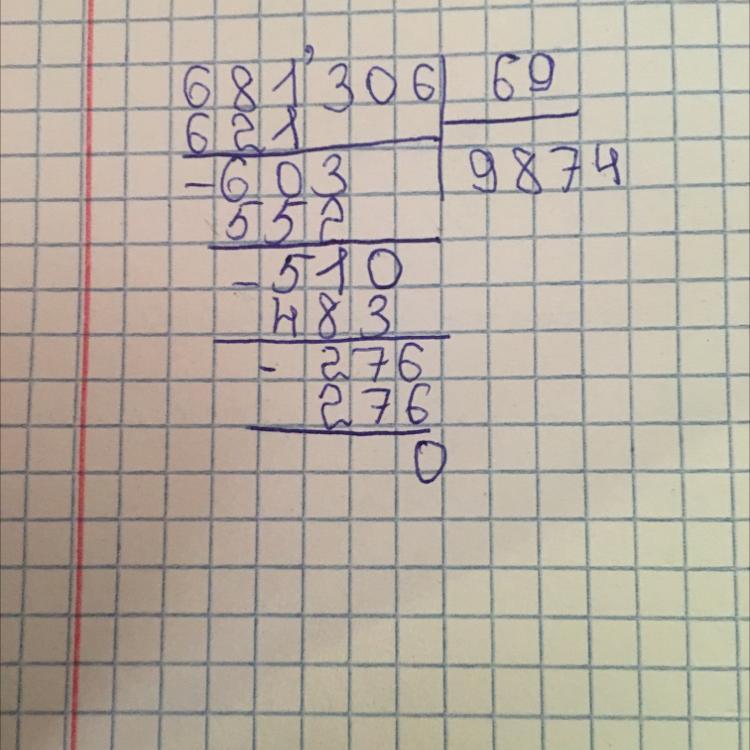 681'306 69
621 9874
-603
552
-510
483
- 276
276
0